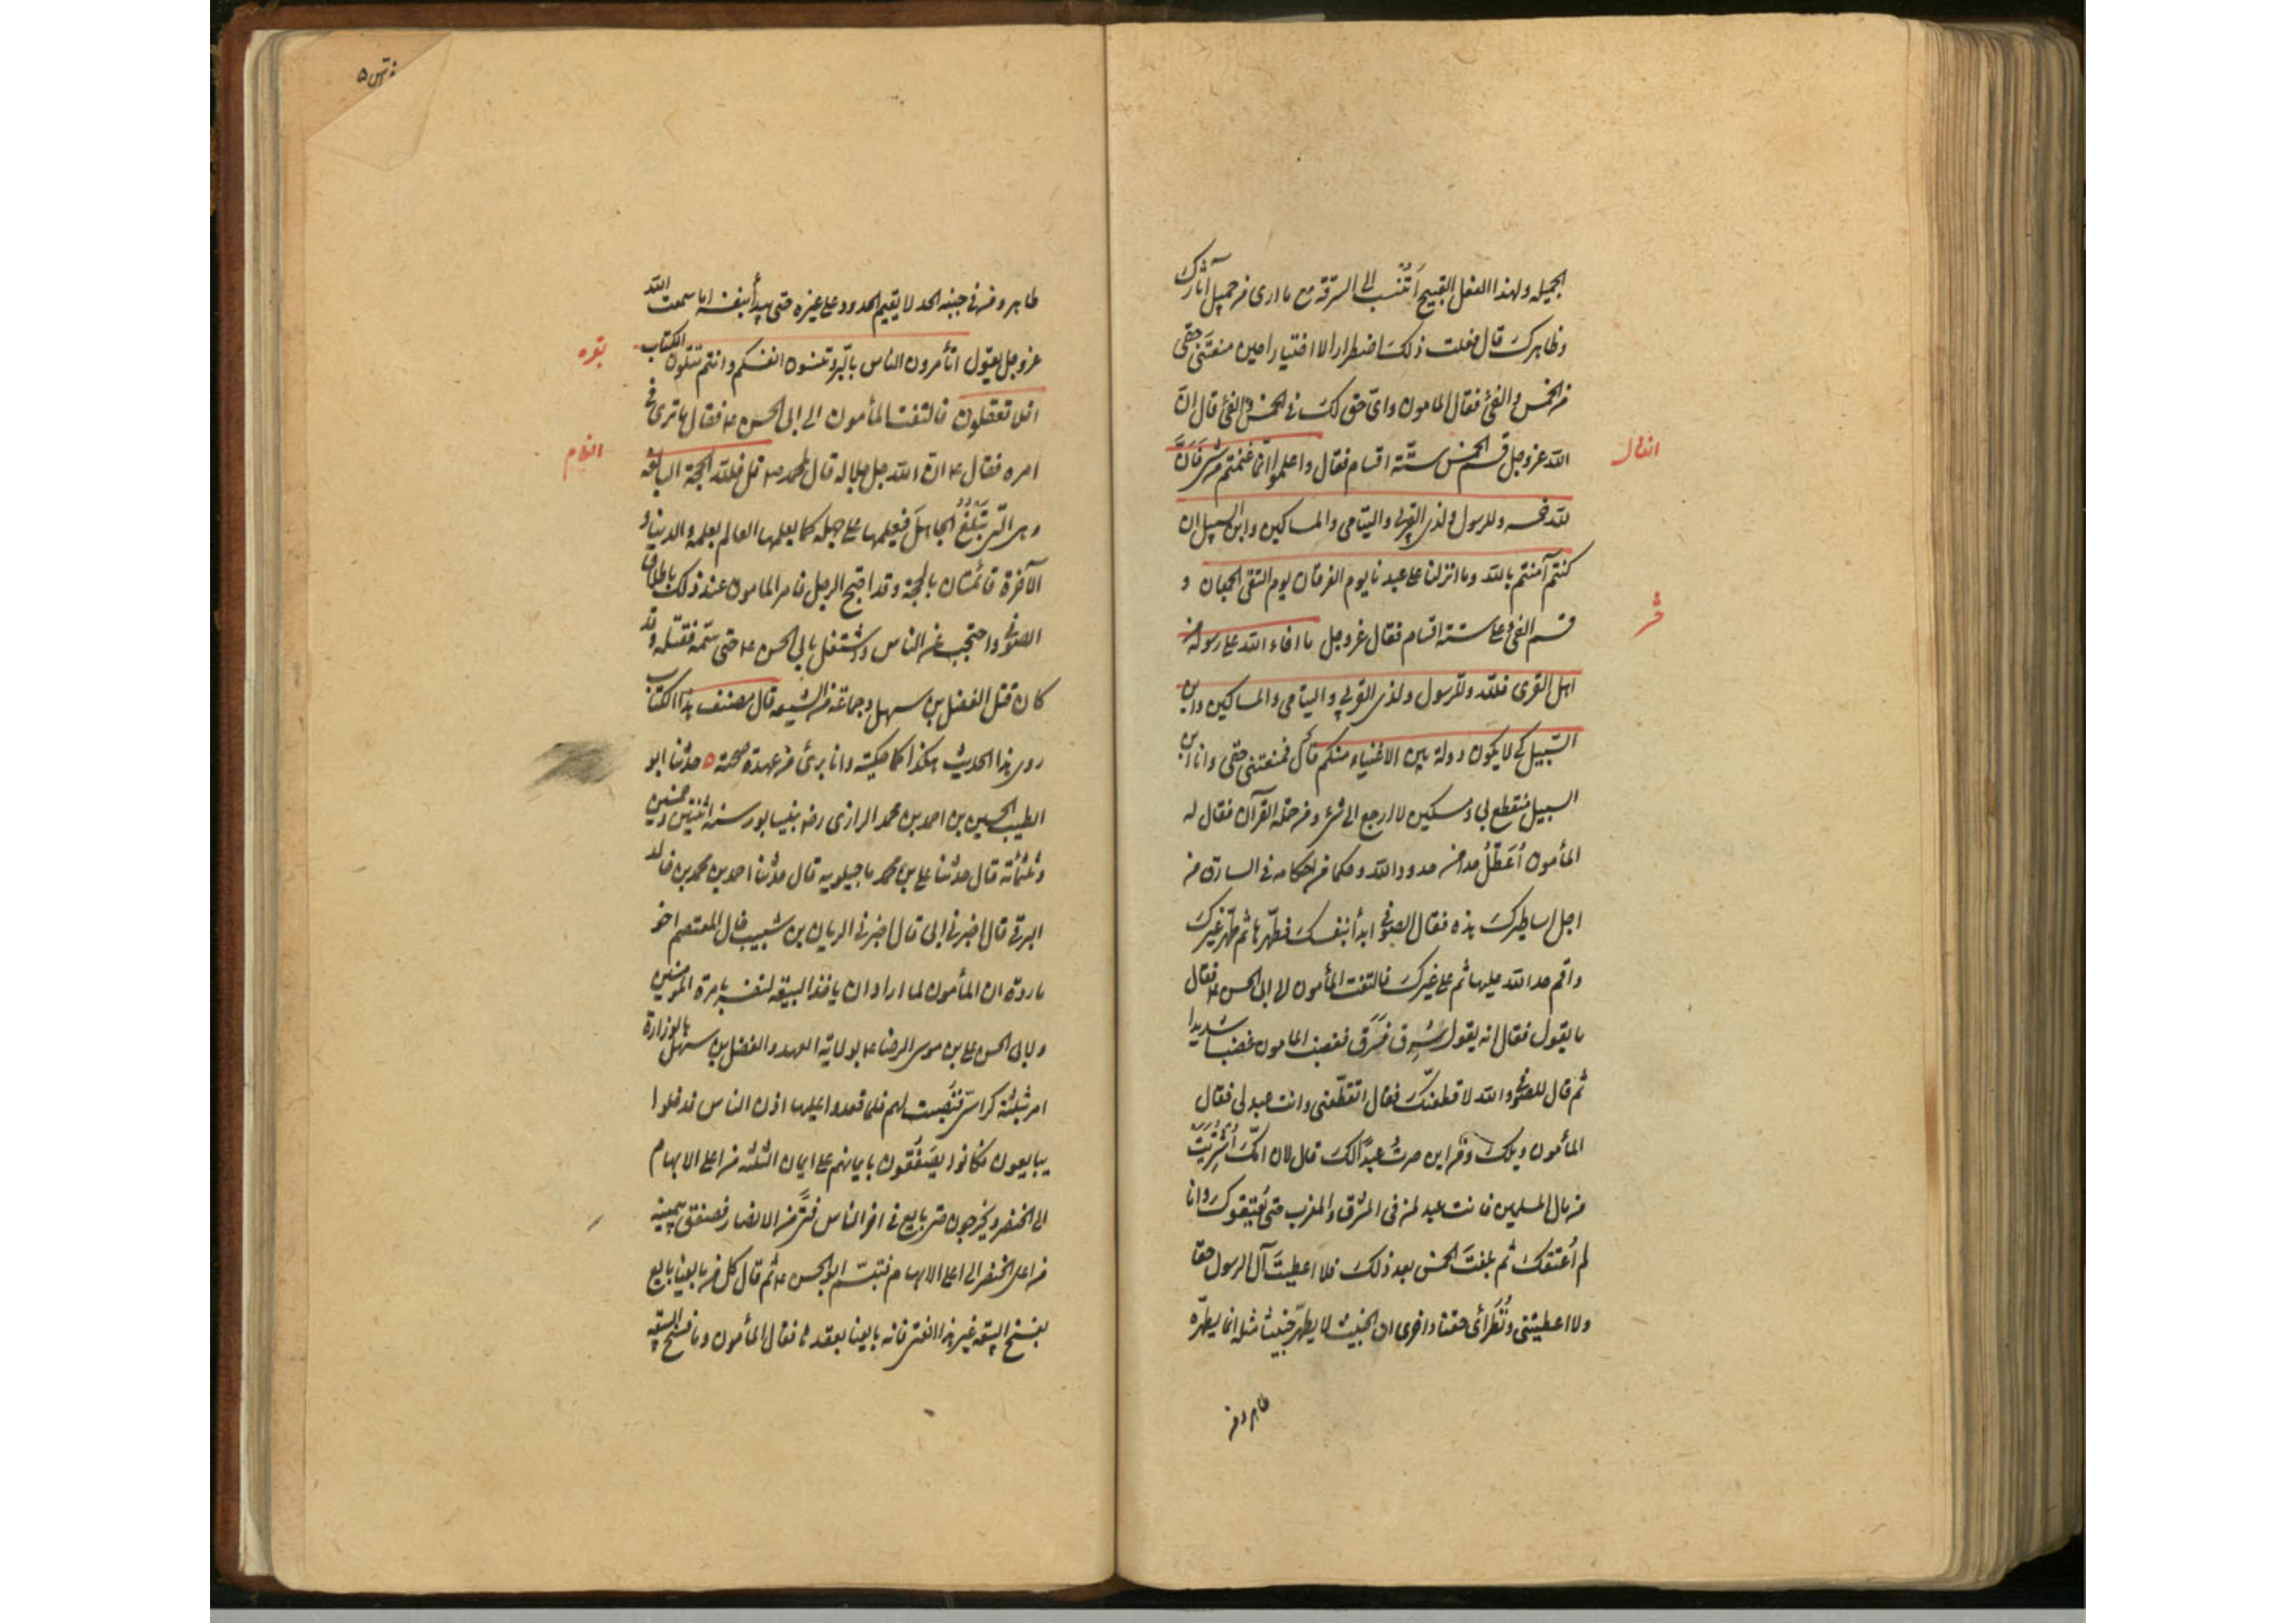 الجمیله ولهذا الفعل القبیح أتُنسب الی السرقة مع ما اری من جمیل آثارک
وظاهرک قال فعلت ذلک اضطرارا لا اختیارا حین منعتنی حقی
من الخمس والفئ فقال المامون وای حق لک فی الخمس والفئ قال ان
الله عزوجل قسم الخمس ستة اقسام فقال واعلموا انما غنمتم من شئ فان
انفال
لله خمسه وللرسول ولذی القربی والیتامی والمساکین وابن السبیل ان
کنتم آمنتم بالله وما انزلنا علی عبدنا یوم الفرقان یوم التقی الجمعان و
قسم الفئ علی ستة اقسام فقال عزوجل ما افاء الله علی رسوله من
حشر
اهل القری فلله وللرسول ولذی القربی والیتامی والمساکین وابن
السّبیل کی لا یکون دولة بین الاغنیاء منکم قال فمنعتنی حقی وانا ابن
السبیل منقطع بی ومسکین لا ارجع الی شئ ومن حملة القرآن فقال له
المأمون أعطّل حدا من حدود الله وحکما من احکامه فی السارق من
اجل اساطیرک هذه فقال الصوفی ابدأ بنفسک فطهّرها ثم طهّر غیرک
واقم حد الله علیها ثم علی غیرک فالتفت المأمون الی ابی الحسن ع فقال
ما یقول فقال انه یقول سُرِق فسَرَق فغضب المامون غضبا شدیدا
ثم قال للصوفی والله لاقطعنّک فقال اتقطّعنی وانت عبد لی فقال
المأمون ویلک ومن این صرت عبدًا لک قال لان امّک اُشتُرِیَت
من مال المسلمین فانت عبد لمن فی المشرق والمغرب حتی یُعتِقوک وانا
لم اُعتِقک ثم بلعتَ الخمس بعد ذلک فلا اعطیتَ آل الرسول حقا
ولا اعطیتنی ونُظَرائی حقنا واخری ان الخبیث لا یطهّر خبیثا مثله انما یطهّره
طاهر ومن
طاهر ومن فی جنبه الحد لا یقیم الحدود علی غیره حتی یبدأ بنفسه اما سمعت الله
عزوجل یقول اتأمرون الناس بالبّر وتنسون انفسکم وانتم تتلون الکتاب
بقره
افلا تعقلون فالتفت المأمون الی ابی الحسن ع فقال ما تری فی
امره فقال ع ان الله جل جلاله قال لمحمد ص قل فلله الحجة البالغه
انعام
وهی التی تَبلُغُ الجاهلَ فیعلمها علی جهله کما یعلمها العالم بعلمه والدنیا و
الآخرة قائمتان بالحجة وقد احتج الرجل فامر المامون عند ذلک باطلاق
الصوفی واحتجب عن الناس واشتغل بابی الحسن ع حتی سمّه فقتله وقد
کان قتل الفضل بن سهل وجماعة من الشیعه قال مصنف هذا الکتاب
روی هذا الحدیث هکذا کما حکیته وانا برئ من عهدة صحته ۵ حدثنا ابو
الطیب الحسین بن احمد بن محمد الرازی رضه بنیسابور سنه اثنتین وخمسین
وثلثمائه قال حدثنا علی بن محمد ماجیلویه قال حدثنا احمد بن محمد بن خالد
البرقی قال اخبرنی ابی قال اخبرنی الریان بن شبیب خال المعتصم اخو
مارده ان المأمون لما اراد ان یاخذ البیعه لنفسه بامرة المومنین
ولابی الحسن علی بن موسی الرضا ع بولایة العهد والفضل بن سهل بالوزارة
امر بثلثة کراسیّ فنُصِبت لهم فلما قعدوا علیها اذن الناس فدخلوا
یبایعون فکانوا یصَفِّقون بایمانهم علی ایمان الثلثه من اعلی الابهام
الی الخنصر ویخرجون حتی بایع فی آخر الناس فتًی من الانصار فصفق بیمینه
من اعلی الخنصر الی اعلی الابهام فتبسّم ابو الحسن ع ثم قال کل من بایعنا بایع
بفسخ البیعه غیر هذا الفتی فانه بایعنا بعقدها فقال المأمون وما فسخ البیعه